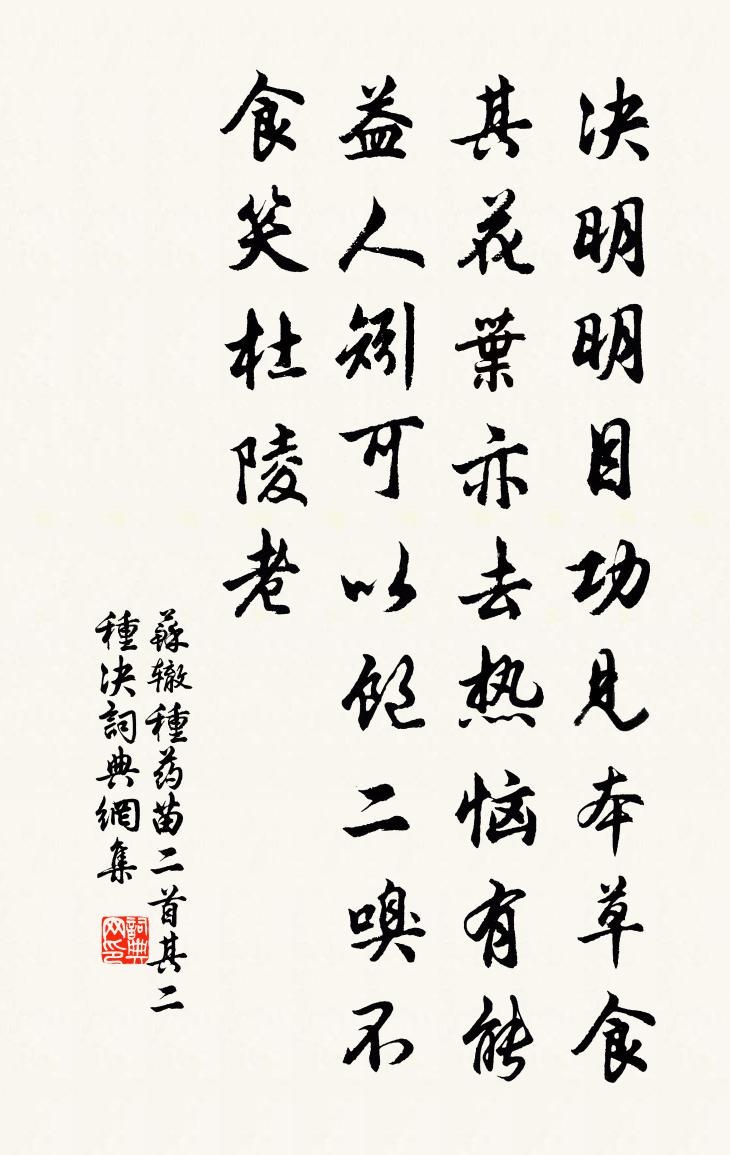 决明明目功見本草食
其花葉亦去热恼有能
益人矧可以飽二嗅不
食笑杜陵老
蘇辙種药苗二首其二
種决詞典網集
詞典
网印